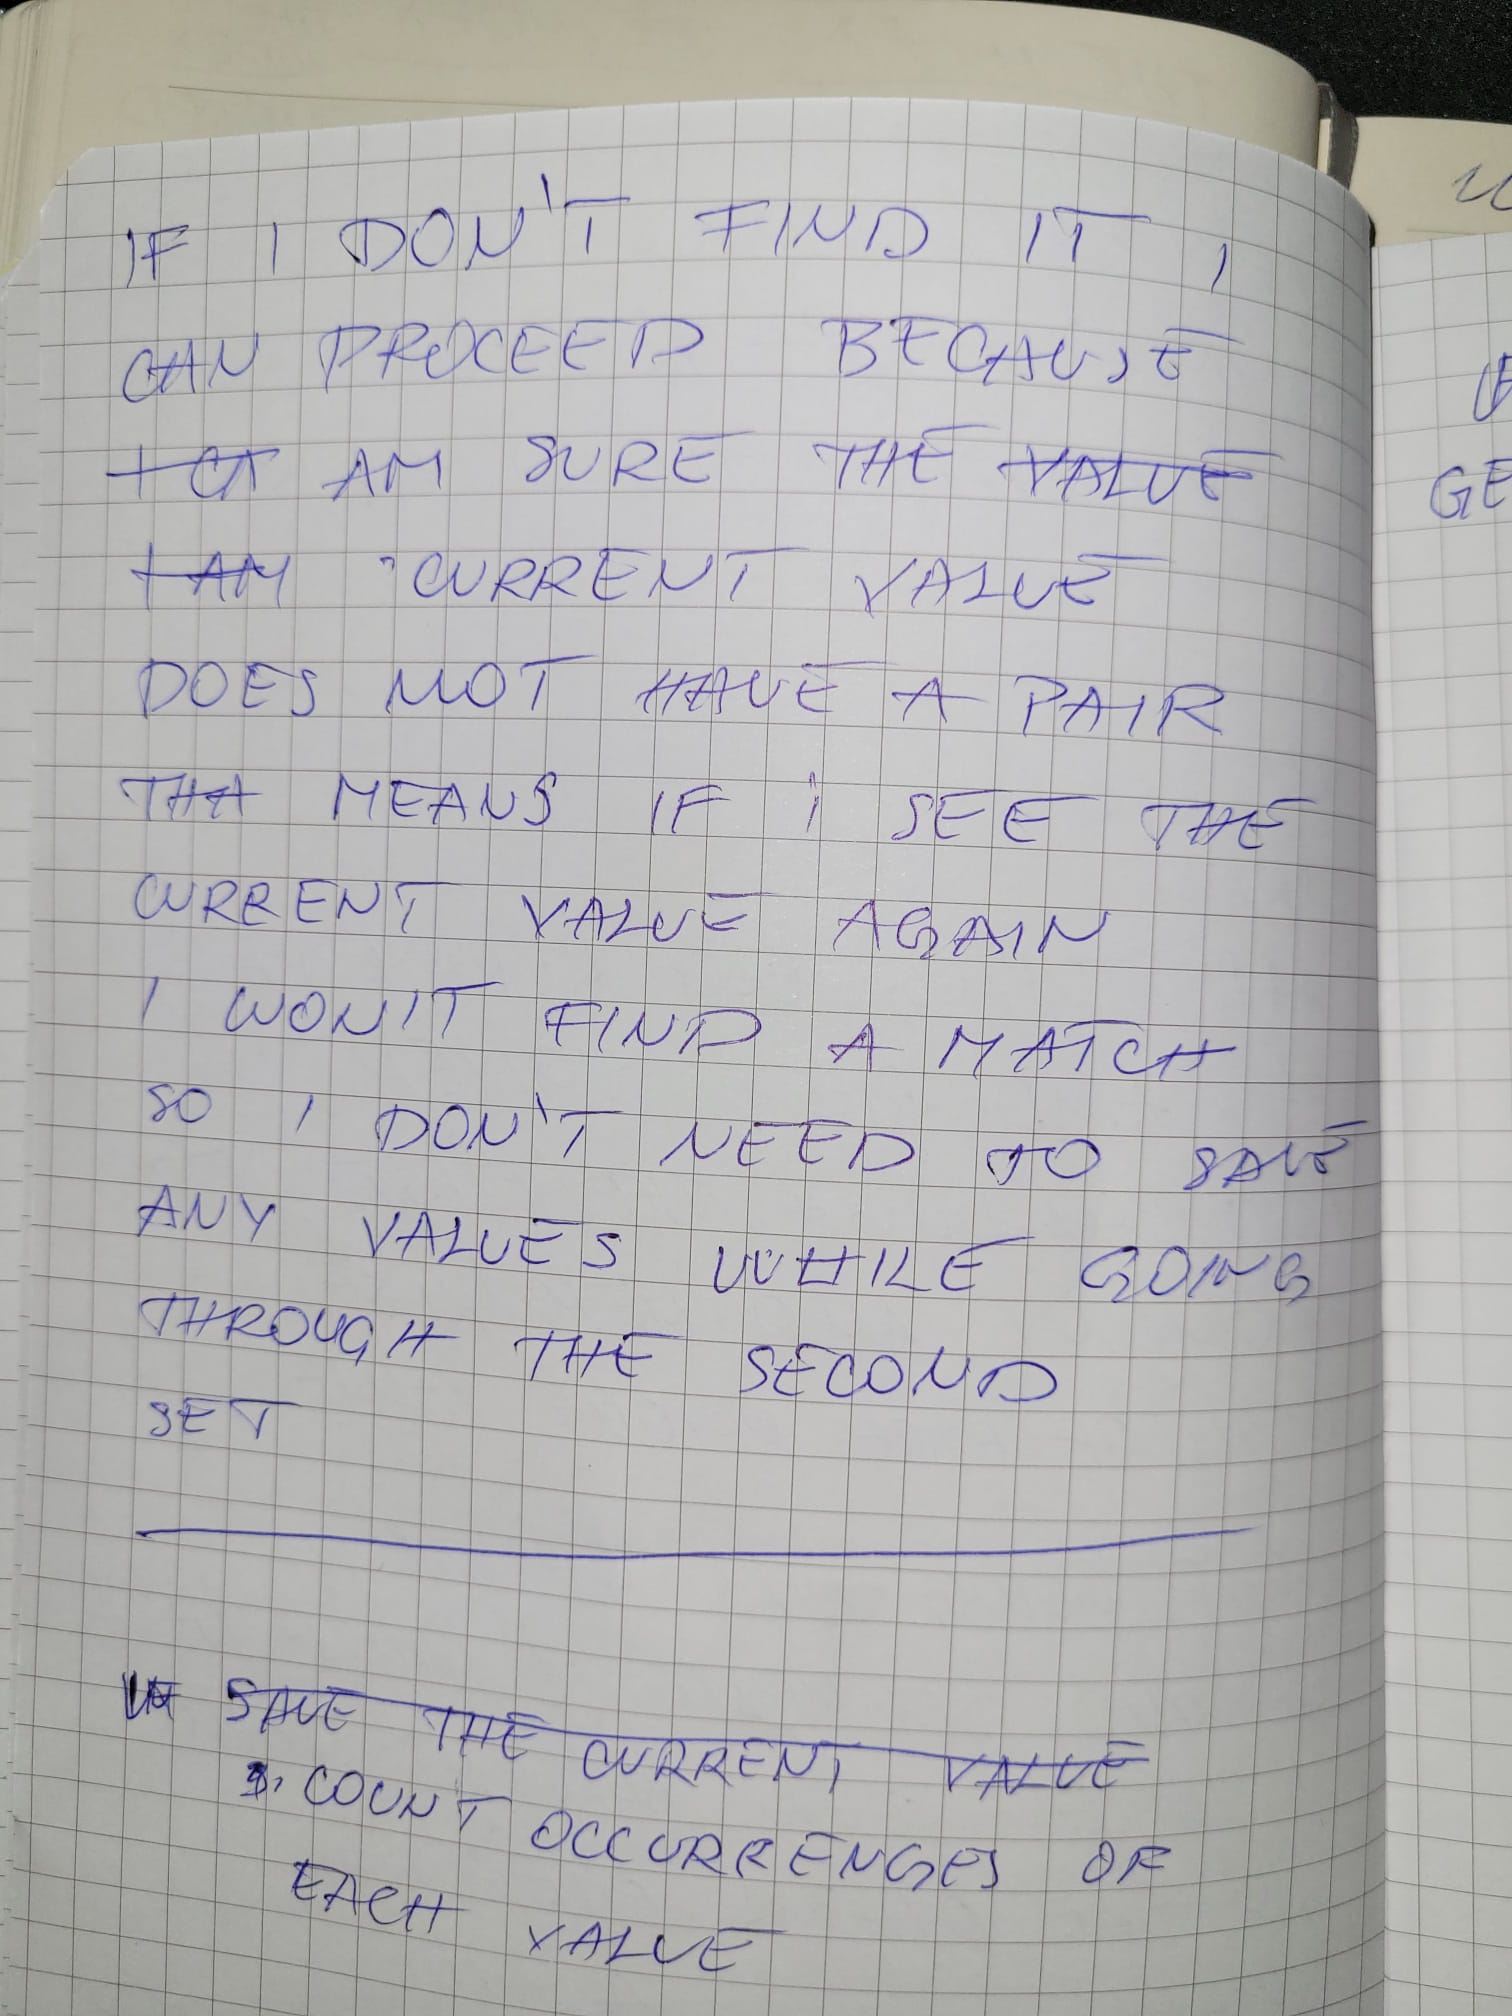 IF I DON'T FIND IT I
CAN PROCEED BECAUSE
I CA AM SURE THE VALUE
I AM CURRENT VALUE
DOES NOT HAVE A PAIR
THA MEANS IF I SEE THE
CURRENT VALUE AGAIN
I WON'T FIND A MATCH
SO I DON'T NEED TO SAVE
ANY VALUES WHILE GOING
THROUGH THE SECOND
SET
SAVE THE CURRENT VALUE
COUNT OCCURRENCES OF
EACH VALUE
GE